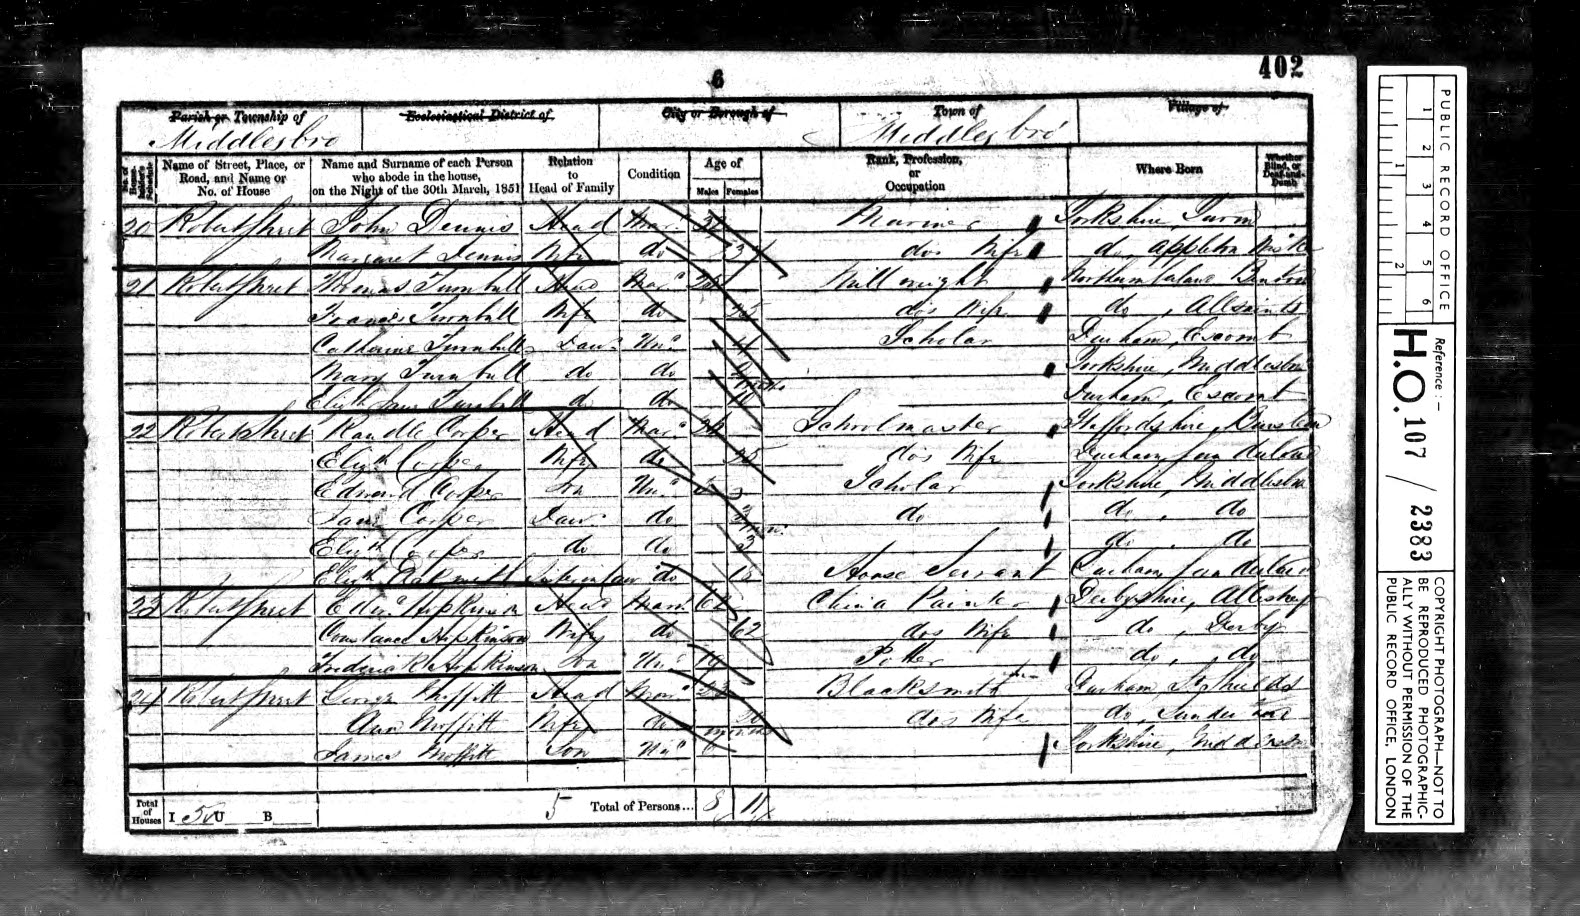 402
6
Parish or Township of Ecclesiastical District of City or Borough of Town of Village of
Middlesbro Middlesbro'
No. of Householder's Schedule Name of Street, Place, or Road, and Name or No. of House Name and Surname of each Person who abode in the house, on the Night of the 30th March, 1851 Relation to Head of Family Condition Age of Males Females Rank, Profession, or Occupation Where Born Whether Blind, or Deaf-and-Dumb
20 Robert Street John Dennis Head Mar. Mariner Yorkshire, Yarm
Margaret Dennis Wife do do's Wife do, Appleton Wiske
21 Robert Street Thomas Turnbull Head Marr 28 Millwright Northumberland
Frances Turnbull Wife do do's Wife do, Allsaints
Catherine Turnbull Daur Unr 4 Scholar Durham, Escomb
Mary Turnbull do do Yorkshire, Middlesbro
Elizth Jane Turnbull do do Durham, Escomb
22 Robert Street Randle Corper Head Marr Schoolmaster Staffordshire, Burslem
Elizth Corper Wife do 25 do's Wife Durham, Sunderland
Edward Corper Son Unr Scholar Yorkshire, Middlesbro
Jane Corper Daur do do do, do
Elizth Corper do do 3 do, do
Elizth Sister in law do House Servant Durham, Sunderland
23 Robert Street Edwd Hipkinson Head Marr China Painter Derbyshire,
Constance Hipkinson Wife do 62 do's Wife do, Derby
Frederick Hipkinson Son Unr 19 Potter do, do
24 Robert Street George Moffitt Head Marr 23 Blacksmith Durham, St Shields
Ann Moffitt Wife do 20 do's Wife do, Sunderland
James Moffitt Son Unr Yorkshire, Middlesbro
Total of Houses I 5 U B 5 Total of Persons... 8 11
PUBLIC RECORD OFFICE
1 2 3 4 5 6
1 2
Reference:-
H.O. 107 / 2383
COPYRIGHT PHOTOGRAPH—NOT TO
BE REPRODUCED PHOTOGRAPHIC-
ALLY WITHOUT PERMISSION OF THE
PUBLIC RECORD OFFICE, LONDON